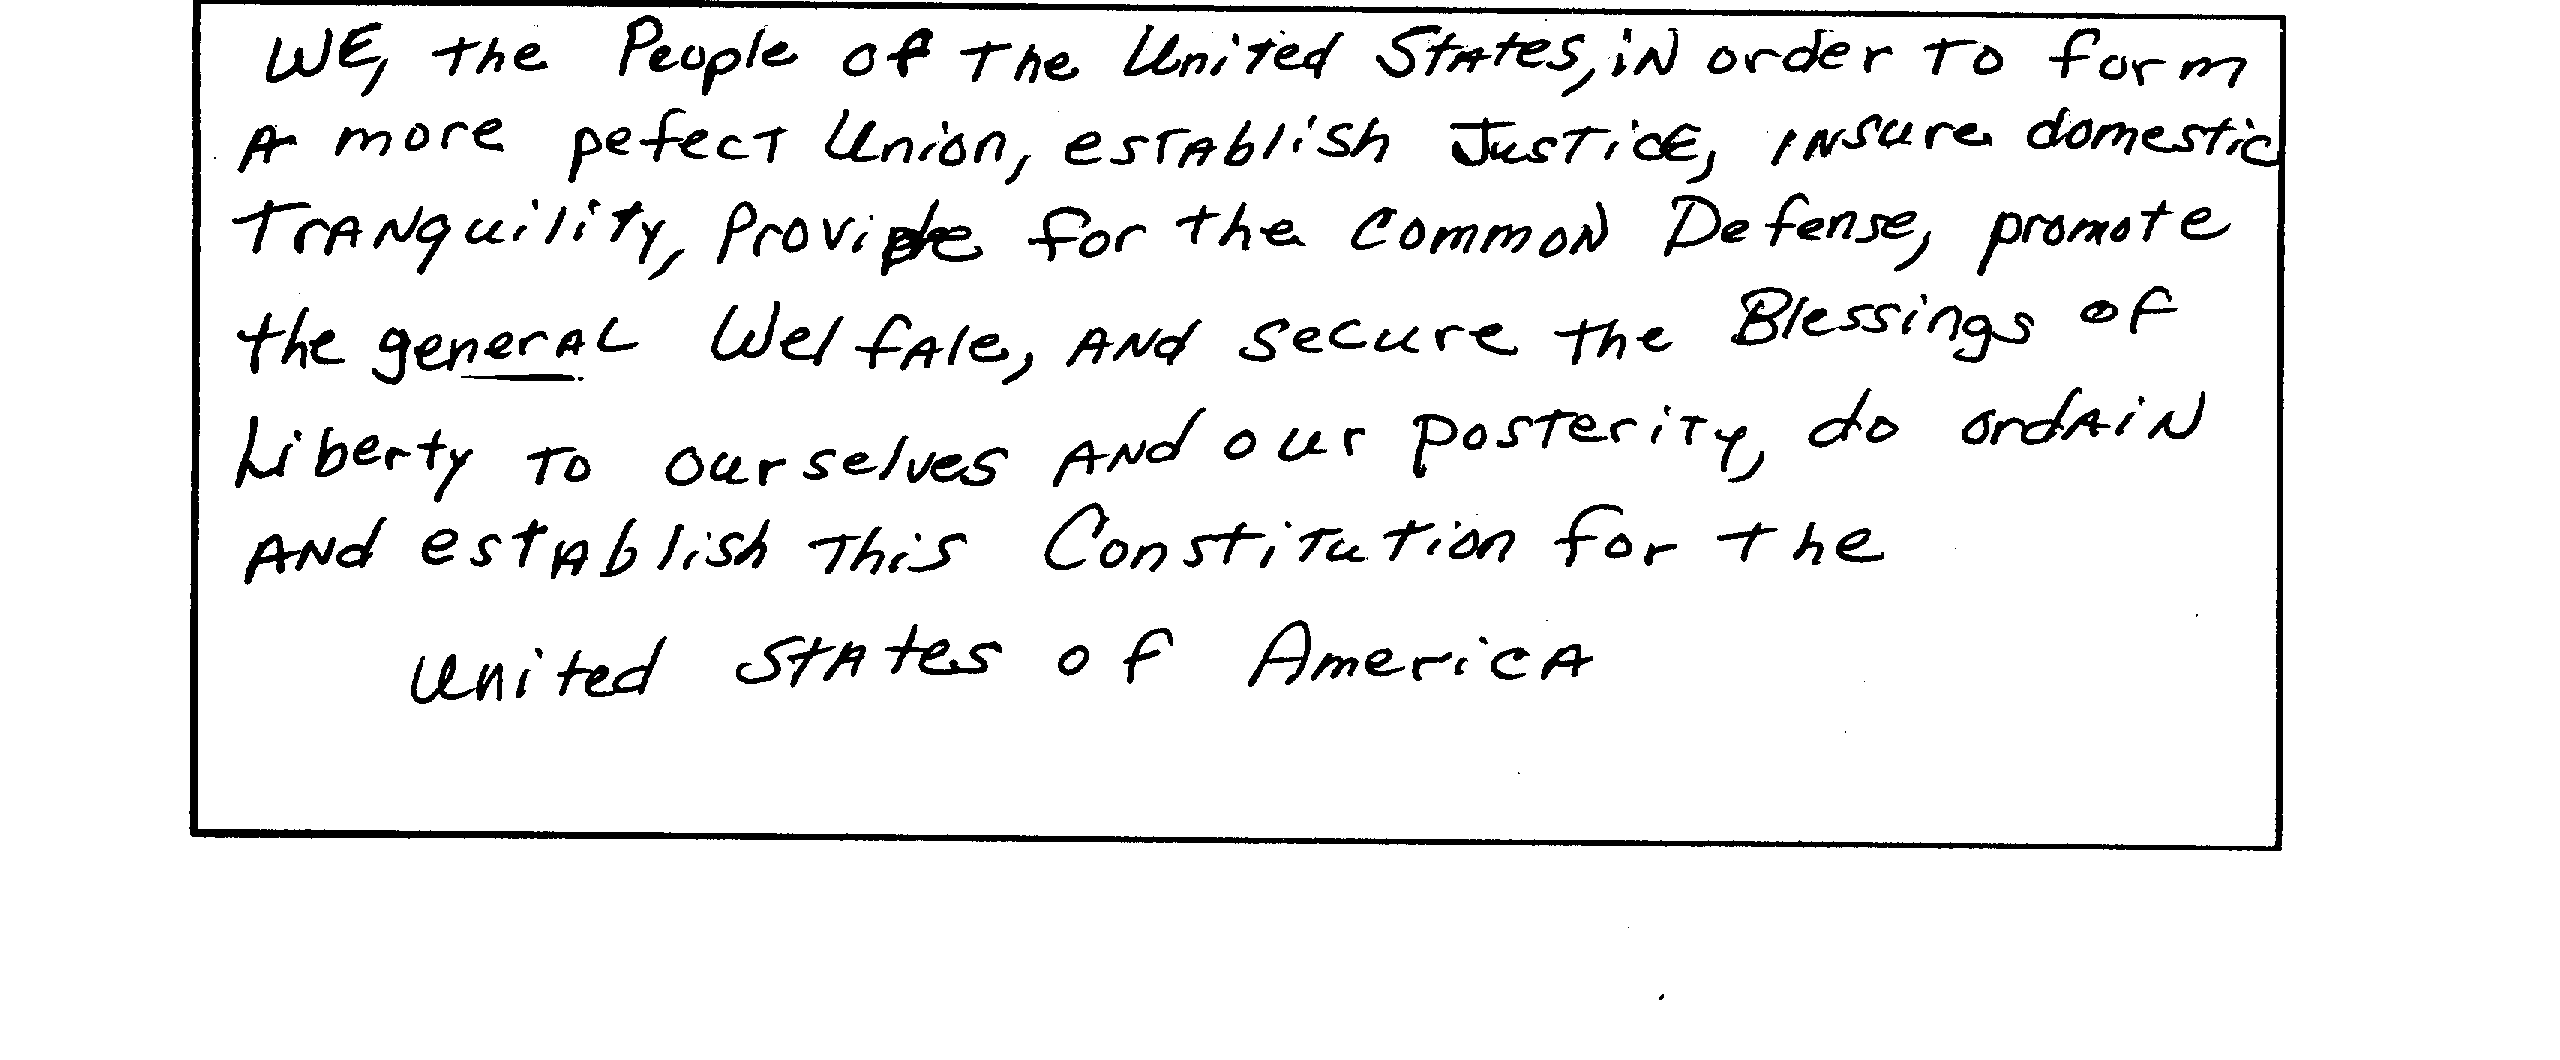 WE, the People of the United States, in order to form
A more pefect Union, establish Justice, insure domestic
Tranquility, Provide for the Common Defense, promote
the general Welfale, and secure the Blessings of
Liberty to ourselves and our posterity, do ordain
and establish this Constitution for the
United States of America